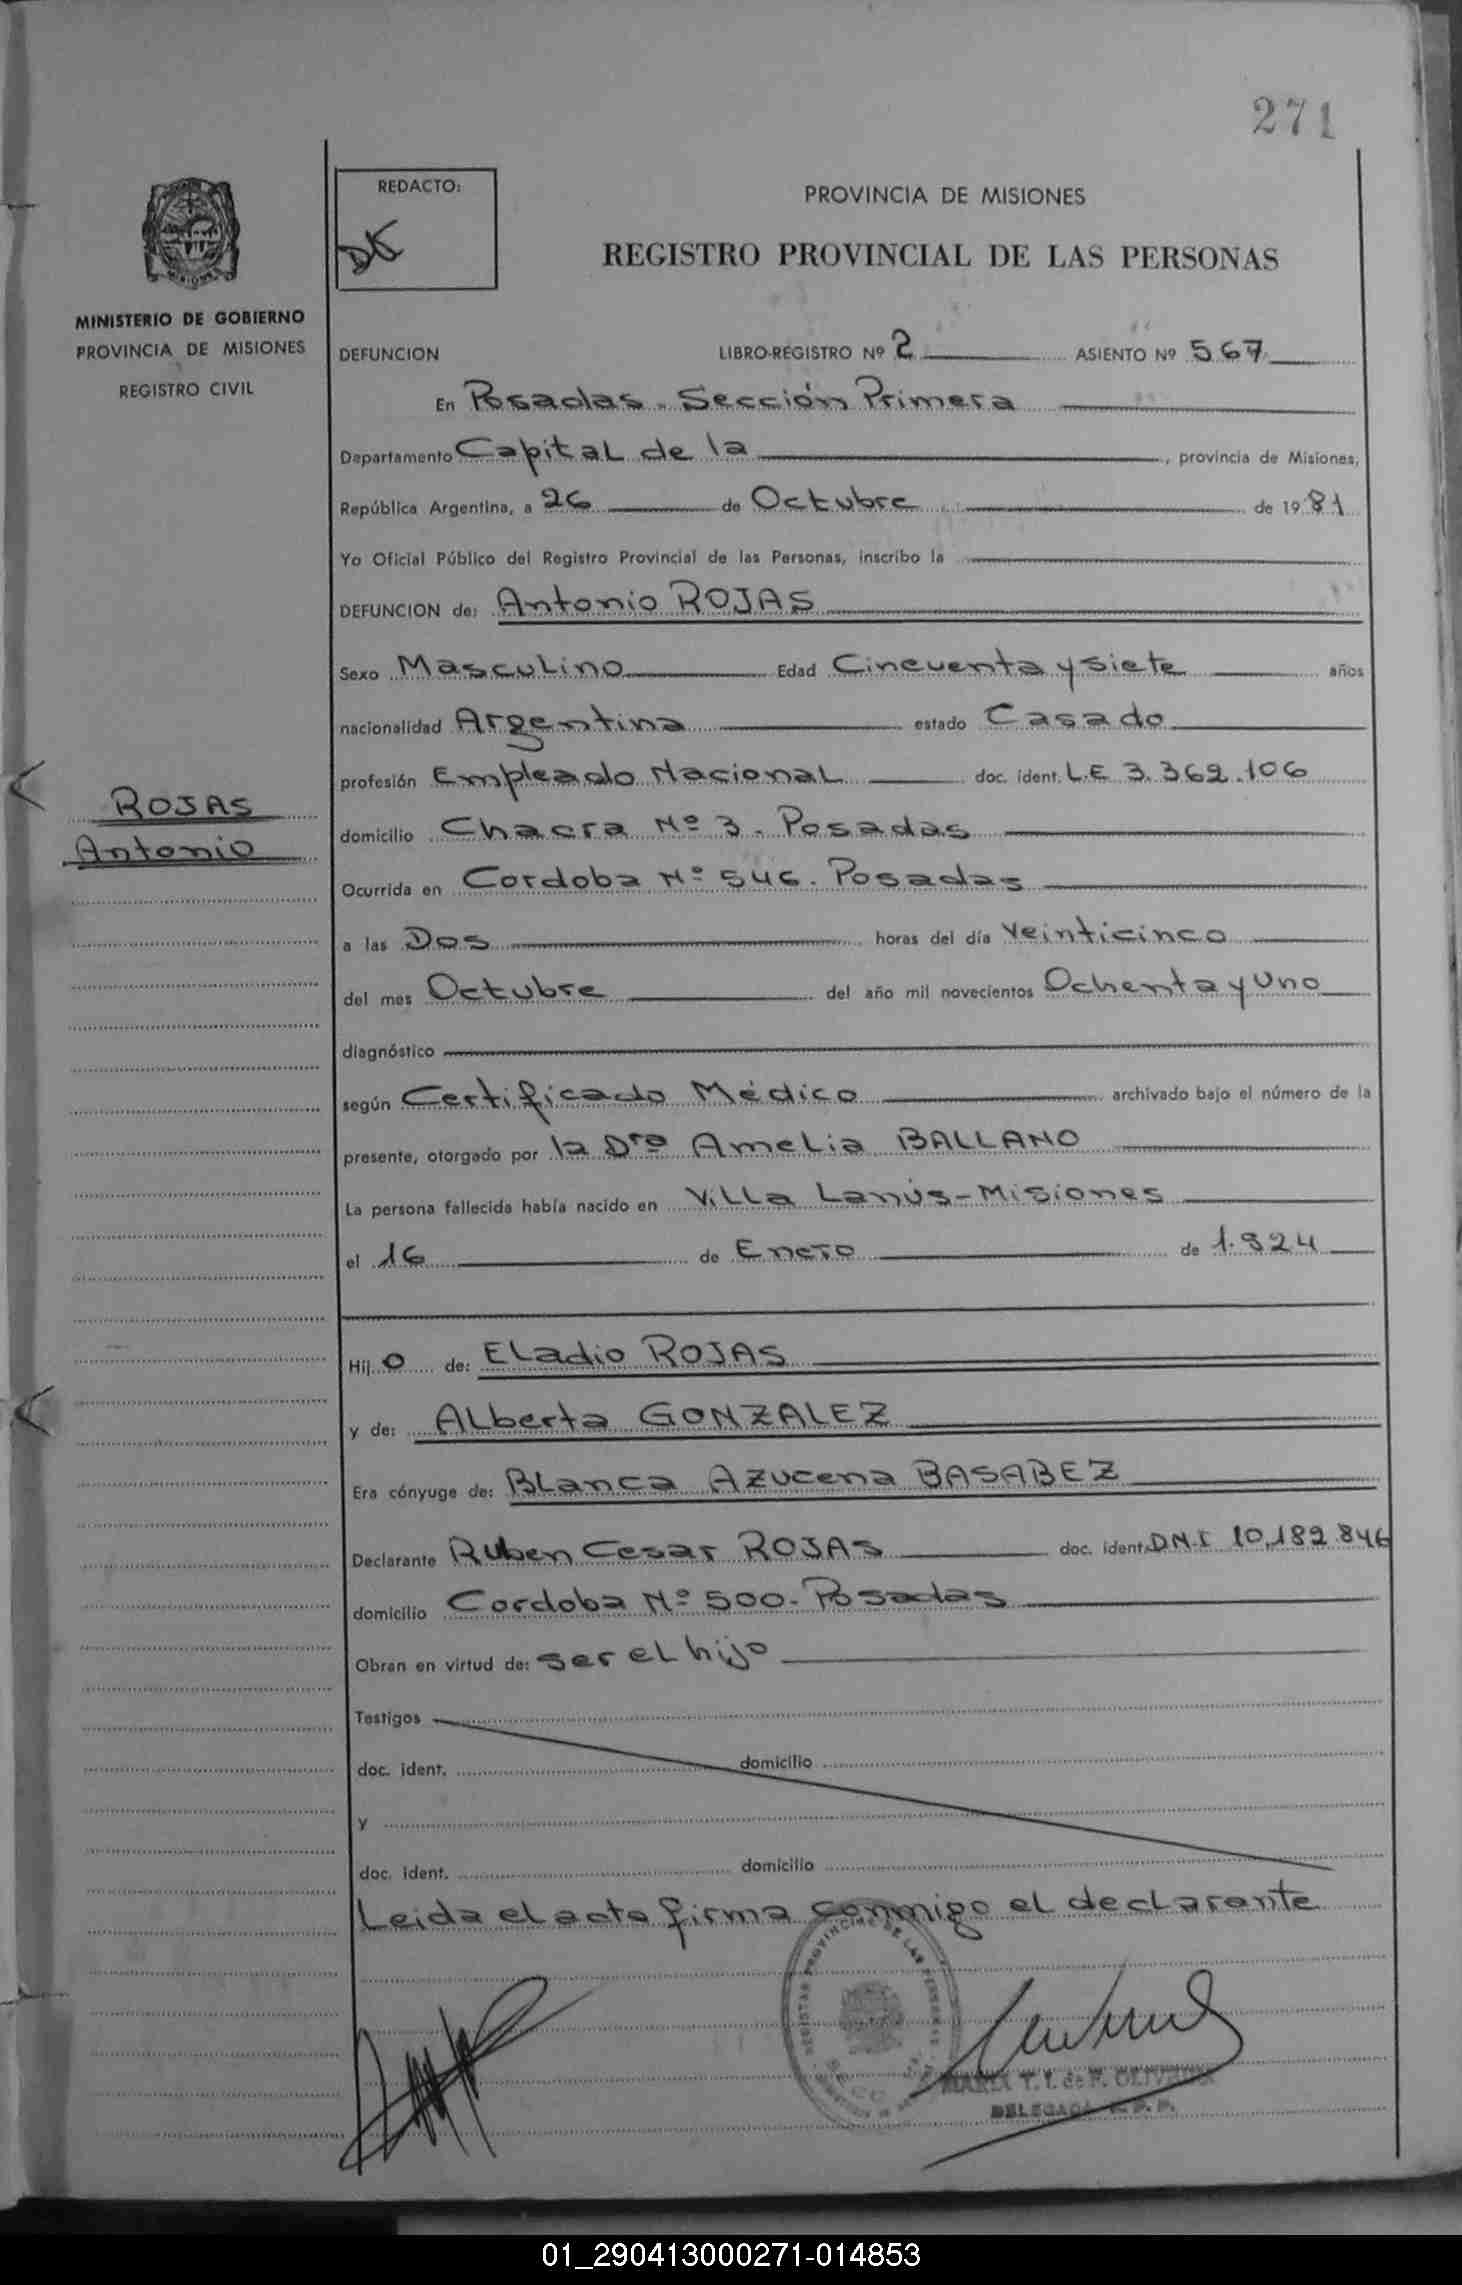 271
REDACTO:
PROVINCIA DE MISIONES
REGISTRO PROVINCIAL DE LAS PERSONAS
MINISTERIO DE GOBIERNO
PROVINCIA DE MISIONES
REGISTRO CIVIL
DEFUNCION LIBRO-REGISTRO Nº 2 ASIENTO Nº 567
En Posadas. Sección Primera
Departamento Capital de la, provincia de Misiones,
República Argentina, a 26 de Octubre de 1981
Yo Oficial Público del Registro Provincial de las Personas, inscribo la
DEFUNCION de: Antonio ROJAS
Sexo Masculino Edad Cincuenta y siete años
nacionalidad Argentina estado Casado
profesión Empleado Nacional doc. ident. L.E 3.362.106
ROJAS
Antonio
domicilio Chacra Nº 3. Posadas
Ocurrida en Cordoba Nº 546. Posadas
a las Dos horas del día Veinticinco
del mes Octubre del año mil novecientos Ochenta y Uno
diagnóstico
según Certificado Médico archivado bajo el número de la
presente, otorgado por la Dra Amelia BALLANO
La persona fallecida había nacido en Villa Lanús-Misiones
el 16 de Enero de 1.924
Hijo de: Eladio ROJAS
y de: Alberta GONZALEZ
Era cónyuge de: Blanca Azucena BASABEZ
Declarante Ruben Cesar ROJAS doc. ident. D.N.I 10.182.846
domicilio Cordoba Nº 500. Posadas
Obran en virtud de: ser el hijo
Testigos
doc. ident. domicilio
y
doc. ident. domicilio
Leida el acta firma conmigo el declarante
MARIA T. I. de F. OLIVEIRA
DELEGADA R. P. P.
01_290413000271-014853